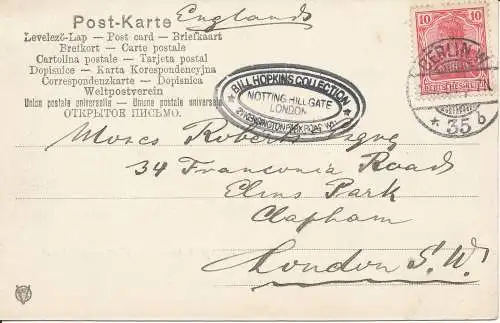 Post-Karte
Englands
Levelező-Lap — Post card — Briefkaart
Brefkort — Carte postale
Cartolina postale — Tarjeta postal
Dopisnice — Karta Korespondencyjna
Correspondenzkarte — Dopisnica
Weltpostverein
Union postale universelle — Unione postale universale
ОТКРЫТОЕ ПИСЬМО.
10 10
BERLIN. W.
* 35 b
BILL HOPKINS COLLECTION
NOTTING HILL GATE
LONDON
KENSINGTON PARK ROAD
Moses Roberts Esqre
34 Franconia Road
Elms Park
Clapham
London S.W.